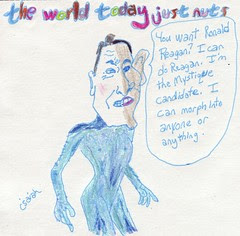 the world today just nuts
You want Ronald
Reagan? I can
do Reagan. I'm
the Mystique
candidate. I
can morph into
anyone or
anything.